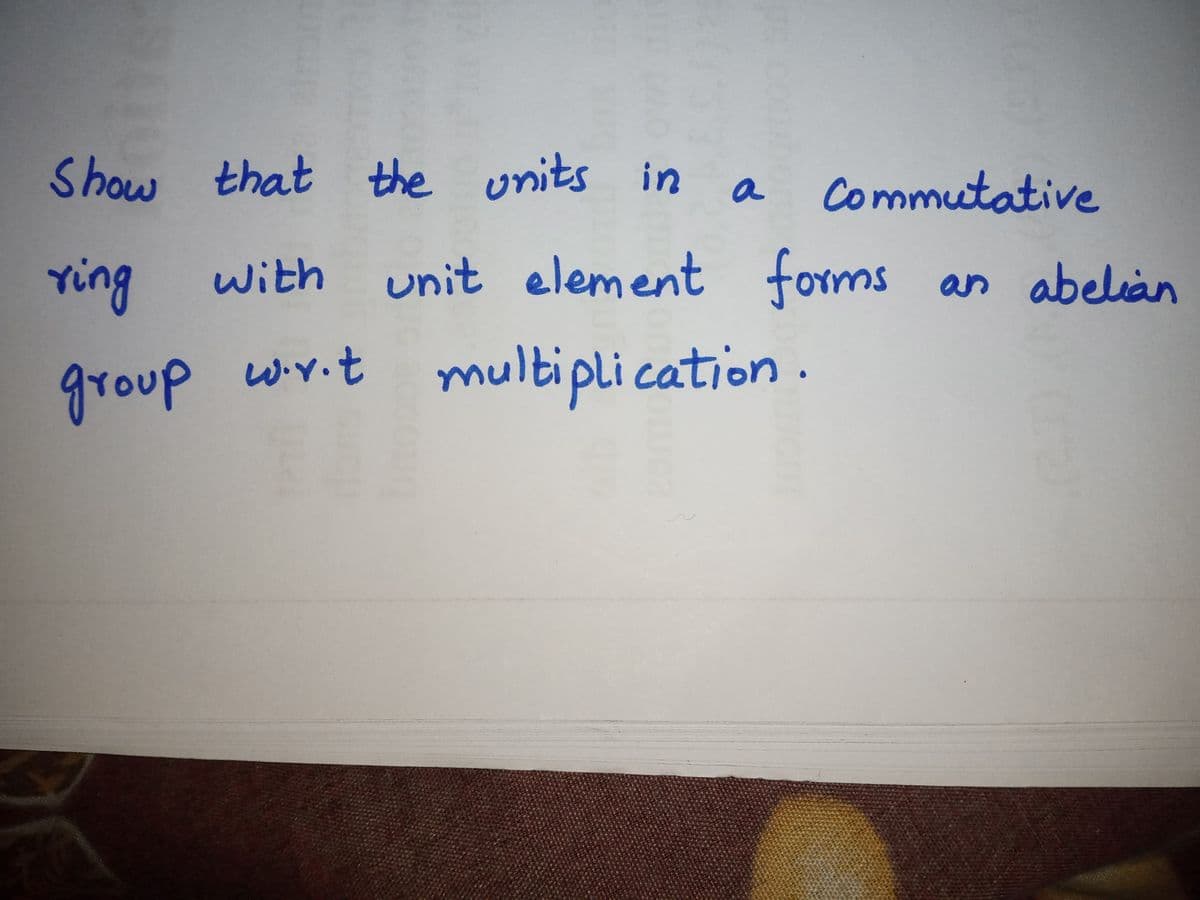 Show that the units in a Commutative
ring with unit element forms an abelian
group w.r.t multiplication.